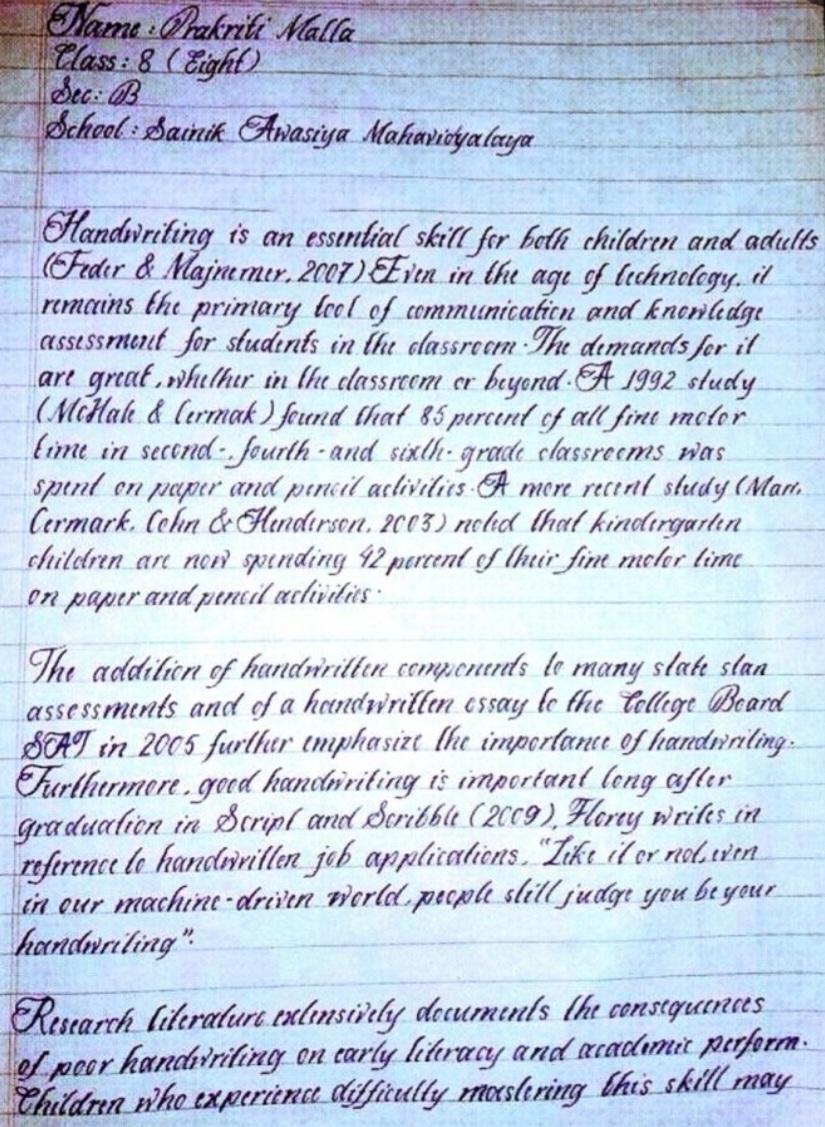 Name : Prakriti Malla
Class : 8 ( Eight)
Sec: B
School : Sainik Awasiya Mahavidyalaya
Handwriting is an essential skill for both children and adults
(Feder & Majnemer, 2007) Even in the age of technology, it
remains the primary tool of communication and knowledge
assessment for students in the classroom. The demands for it
are great, whether in the classroom or beyond. A 1992 study
(McHale & Cermak) found that 85 percent of all fine motor
time in second-, fourth - and sixth- grade classrooms was
spent on paper and pencil activities. A more recent study (Marr,
Cermark, Cohn & Henderson, 2003) noted that kindergarten
children are now spending 42 percent of their fine motor time
on paper and pencil activities.
The addition of handwritten components to many state stan
assessments and of a handwritten essay to the College Board
SAT in 2005 further emphasize the importance of handwriting.
Furthermore, good handwriting is important long after
graduation in Script and Scribble (2009), Florey writes in
reference to handwritten job applications, "Like it or not, even
in our machine-driven world, people still judge you be your
handwriting".
Research literature extensively documents the consequences
of poor handwriting on early literacy and academic perform.
Children who experience difficully mastering this skill may